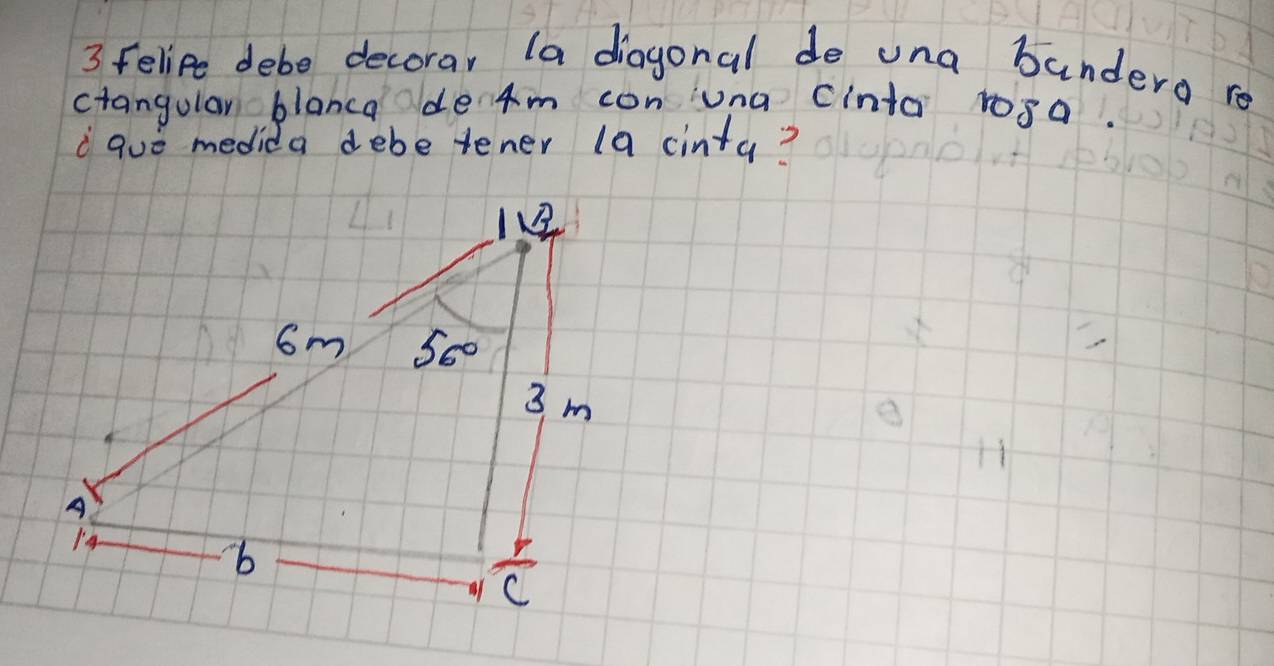 3 Felipe debe decorar la diagonal de una bandera re
ctangular blanca de 4m con una cinta rosa.
¿que medida debe tener la cinta?
B
6m
56°
3 m
A
b
C